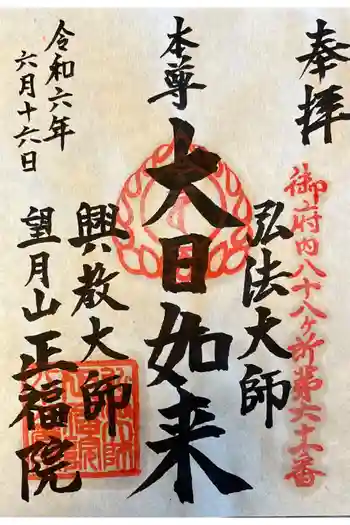 奉拝
御府内八十八ヶ所第六十一番
弘法大師
本尊
大日如来
興教大師
令和六年
六月十六日
望月山正福院